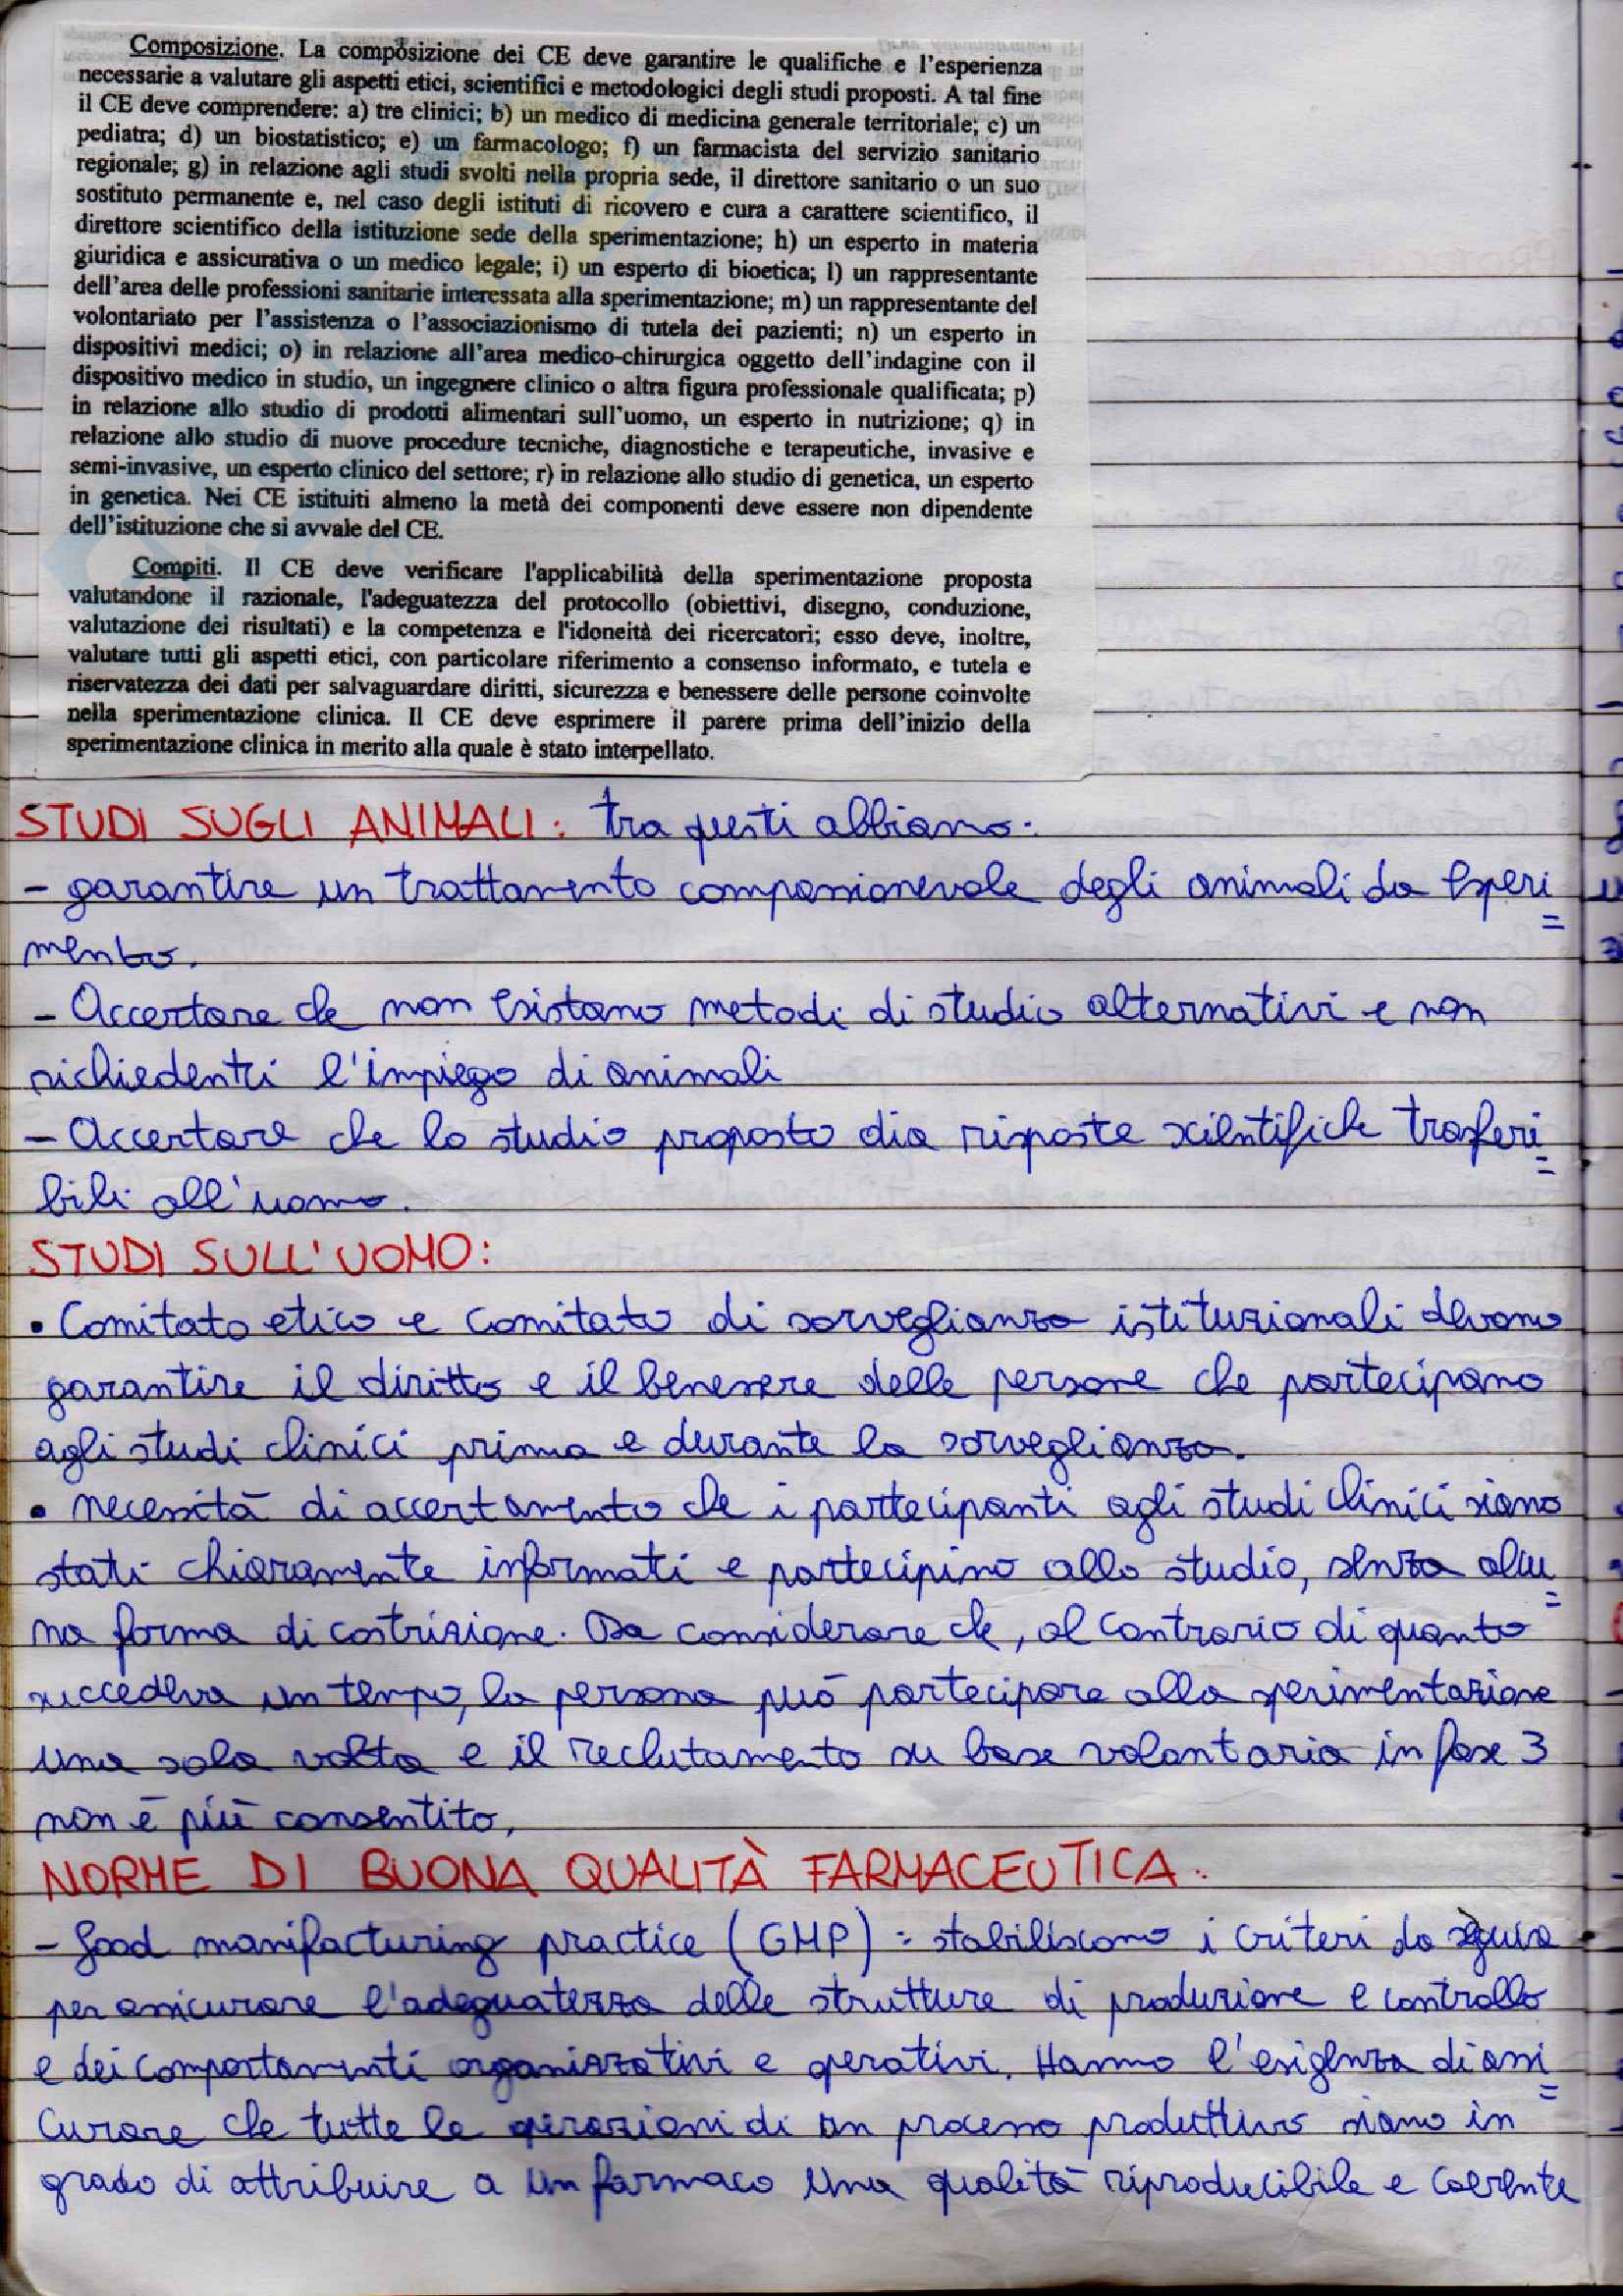 Composizione. La composizione dei CE deve garantire le qualifiche e l'esperienza
necessarie a valutare gli aspetti etici, scientifici e metodologici degli studi proposti. A tal fine
il CE deve comprendere: a) tre clinici; b) un medico di medicina generale territoriale; c) un
pediatra; d) un biostatistico; e) un farmacologo; f) un farmacista del servizio sanitario
regionale; g) in relazione agli studi svolti nella propria sede, il direttore sanitario o un suo
sostituto permanente e, nel caso degli istituti di ricovero e cura a carattere scientifico, il
direttore scientifico della istituzione sede della sperimentazione; h) un esperto in materia
giuridica e assicurativa o un medico legale; i) un esperto di bioetica; l) un rappresentante
dell'area delle professioni sanitarie interessata alla sperimentazione; m) un rappresentante del
volontariato per l'assistenza o l'associazionismo di tutela dei pazienti; n) un esperto in
dispositivi medici; o) in relazione all'area medico-chirurgica oggetto dell'indagine con il
dispositivo medico in studio, un ingegnere clinico o altra figura professionale qualificata; p)
in relazione allo studio di prodotti alimentari sull'uomo, un esperto in nutrizione; q) in
relazione allo studio di nuove procedure tecniche, diagnostiche e terapeutiche, invasive e
semi-invasive, un esperto clinico del settore; r) in relazione allo studio di genetica, un esperto
in genetica. Nei CE istituiti almeno la metà dei componenti deve essere non dipendente
dell'istituzione che si avvale del CE.
Compiti. Il CE deve verificare l'applicabilità della sperimentazione proposta
valutandone il razionale, l'adeguatezza del protocollo (obiettivi, disegno, conduzione,
valutazione dei risultati) e la competenza e l'idoneità dei ricercatori; esso deve, inoltre,
valutare tutti gli aspetti etici, con particolare riferimento a consenso informato, e tutela e
riservatezza dei dati per salvaguardare diritti, sicurezza e benessere delle persone coinvolte
nella sperimentazione clinica. Il CE deve esprimere il parere prima dell'inizio della
sperimentazione clinica in merito alla quale è stato interpellato.
STUDI SUGLI ANIMALI: tra questi abbiamo:
- garantire un trattamento compassionevole degli animali da esperi=
mento.
- Accertare che non esistano metodi di studio alternativi e non
richiedenti l'impiego di animali
- Accertare che lo studio proposto dia risposte scientifiche trasferi=
bili all'uomo.
STUDI SULL'UOMO:
• Comitato etico e comitato di sorveglianza istituzionali devono
garantire il diritto e il benessere delle persone che partecipano
agli studi clinici prima e durante la sorveglianza.
• necessità di accertamento che i partecipanti agli studi clinici siano
stati chiaramente informati e partecipino allo studio, senza alcu=
na forma di costrizione. Da considerare che, al contrario di quanto
succedeva un tempo, la persona può partecipare alla sperimentazione
una sola volta e il reclutamento su base volontaria in fase 3
non è più consentito.
NORME DI BUONA QUALITÀ FARMACEUTICA:
- Good manifacturing practice (GMP): stabiliscono i criteri da seguire
per assicurare l'adeguatezza delle strutture di produzione e controllo
e dei comportamenti organizzativi e operativi. Hanno l'esigenza di assi=
curare che tutte le operazioni di un processo produttivo siano in
grado di attribuire a un farmaco una qualità riproducibile e coerente